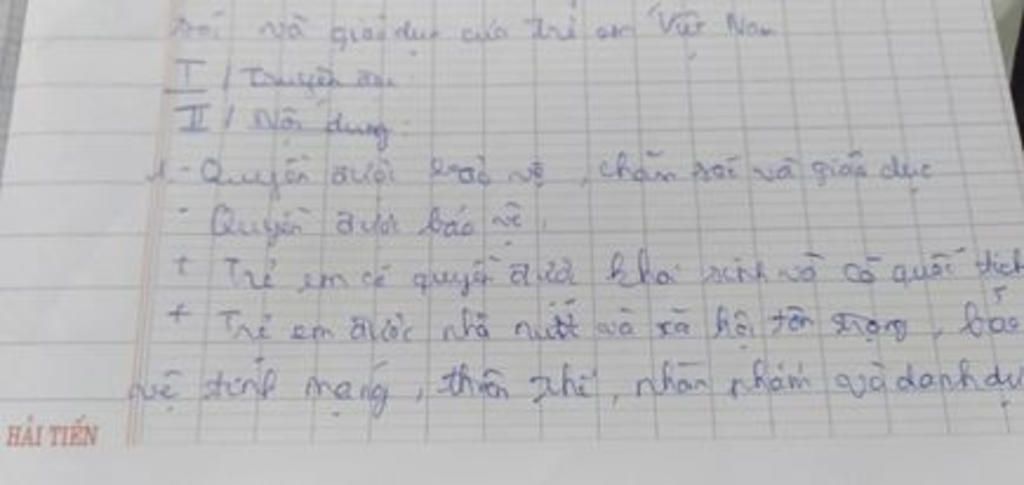 sóc và giáo dục của trẻ em Việt Nam
I / Truyện đọc
II / Nội dung:
1 - Quyền được bảo vệ, chăm sóc và giáo dục
- Quyền được bảo vệ.
+ Trẻ em có quyền được khai sinh và có quốc tịch
+ Trẻ em được nhà nước và xã hội tôn trọng, bảo
vệ tính mạng, thân thể, nhân phẩm và danh dự
HẢI TIẾN